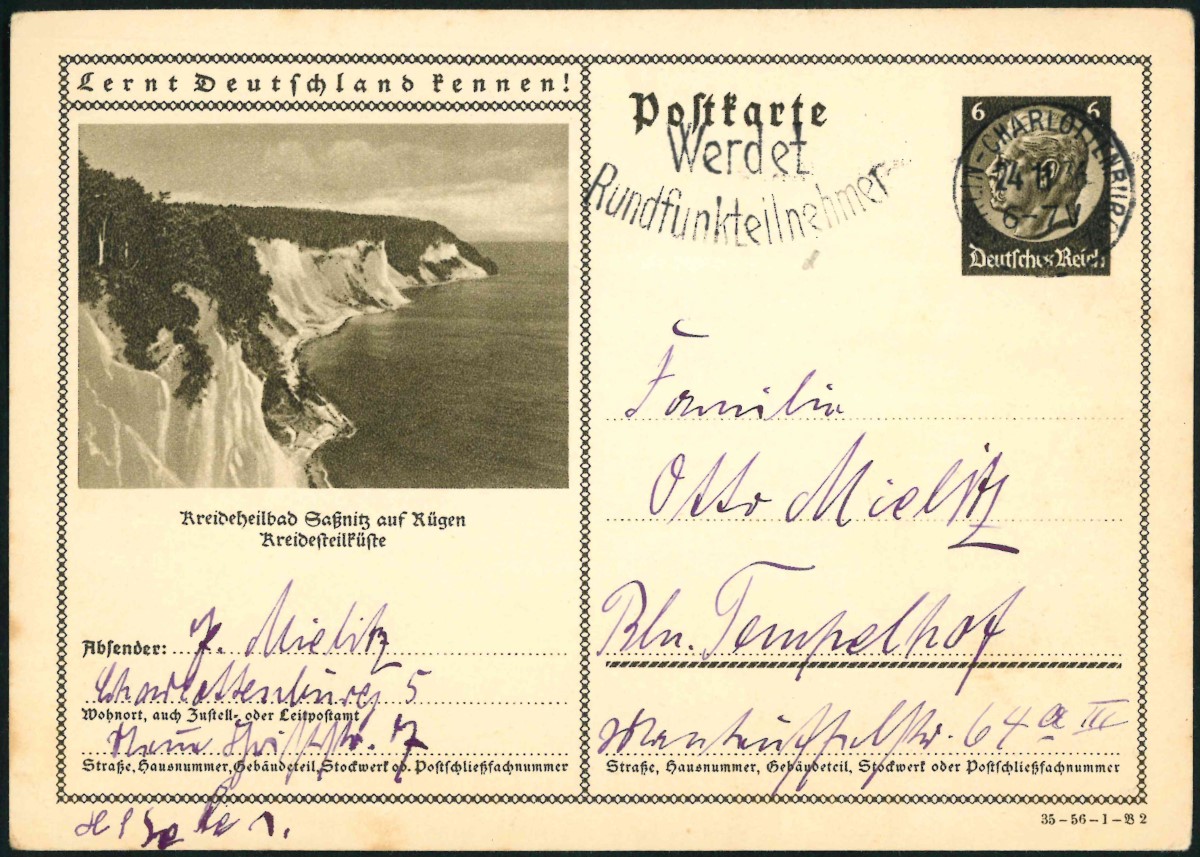 Lernt Deutschland kennen!
Kreideheilbad Saßnitz auf Rügen
Kreidesteilküste
Absender: J. Mielitz
Charlottenburg 5
Wohnort, auch Zustell- oder Leitpostamt
Neue Christstr. 7
Straße, Hausnummer, Gebäudeteil, Stockwerk od. Postschließfachnummer
Postkarte
Werdet
Rundfunkteilnehmer
6 6
CHARLOTTENBURG
24 11
6-7 V
Deutsches Reich
Familie
Otto Mielitz
Bln. Tempelhof
Manteuffelstr. 64 a III
Straße, Hausnummer, Gebäudeteil, Stockwerk oder Postschließfachnummer
35-56-1-B 2